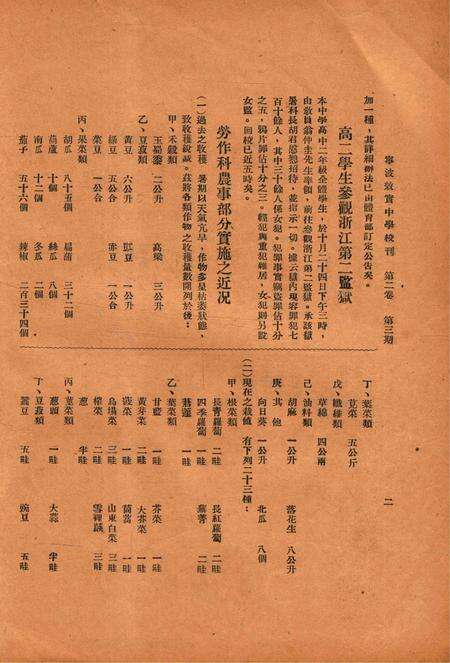 寧波效實中學校刊 第二卷 第三期
二
加一種，其詳細辦法已由體育部訂定公告矣。
高二學生參觀浙江第二監獄
本中學高中二年級全體學生，於十月二十四日下午三時，
由敎員翁仲圭先生率領，前往參觀浙江第二監獄。承該獄
署科長胡君懇懃招待，並指示一切。據云獄內現容罪犯七
百十餘人，其中三十餘人係女犯。犯罪事實竊盜罪佔十分
之五，鴉片罪佔十分之三。輕犯與重犯雜居，女犯則另設
女監。回校已近五時矣。
勞作科農事部分實施之近況
(一)過去之收穫 暑期以天氣亢旱，作物多呈枯萎狀態，
致收穫銳減。茲將各類作物之收穫量數開列於後：
甲、禾穀類
玉蜀黍 二公升 高粱 三公升
乙、豆菽類
黃豆 六公升 豇豆 一公升
綠豆 五公升 赤豆 一公合
菜豆 一公合
丙、果菜類
胡瓜 八十五個 扁蒲 三十二個
葫蘆 十個 絲瓜 八個
南瓜 十二個 冬瓜 二個
茄子 五十六個 辣椒 二百三十四個
丁、葉菜類
莧菜 五公斤
戊、纖維類
草綿 四公兩
己、油料類
胡麻 一公升 落花生 八公升
庚、其 他
向日葵 一公升 北瓜 八個
(二)現在之栽植 有下列二十三種：
甲、根菜類
長青蘿蔔 二畦 長紅蘿蔔 二畦
四季蘿蔔 一畦 蕪菁 二畦
菾蓬 一畦
乙、葉菜類
甘藍 一畦 芥菜 一畦
黃芽菜 二畦 大芥菜 一畦
菠菜 一畦 茼蒿 一畦
烏塲菜 三畦 山東白菜 三畦
樟菜 二畦 雪裡蕻 三畦
葱 半畦
丙、莖菜類
葱頭 一畦 大蒜 半畦
丁、豆菽類
蠶豆 五畦 豌豆 五畦